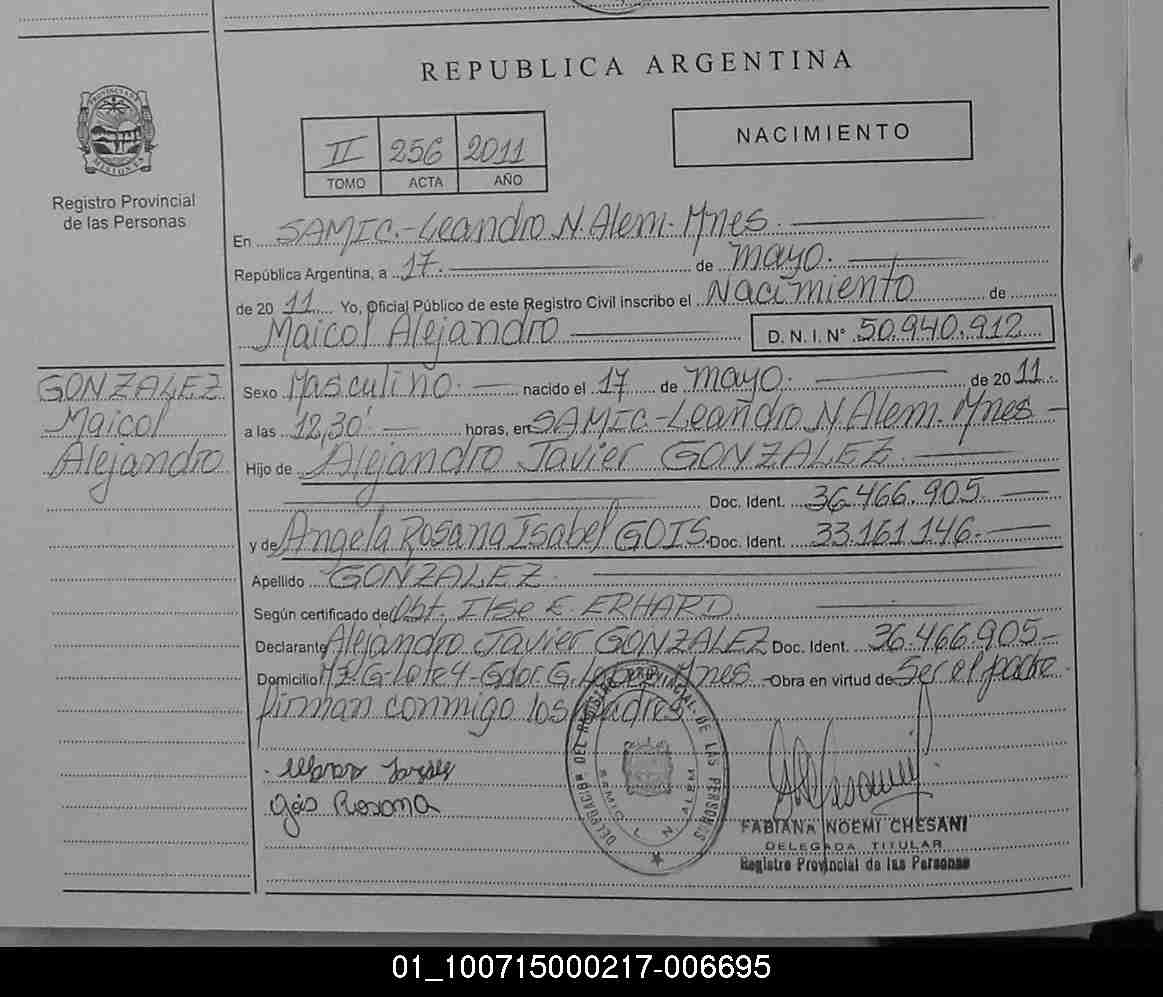 REPUBLICA ARGENTINA
PROVINCIA DE MISIONES
Registro Provincial
de las Personas
II 256 2011
TOMO ACTA AÑO
NACIMIENTO
En SAMIC.-Leandro N. Alem. Mnes
República Argentina, a 17. de mayo.
de 2011 Yo, Oficial Público de este Registro Civil inscribo el Nacimiento de
Maicol Alejandro D. N. I. N° 50.940.912
GONZALEZ
Maicol
Alejandro
Sexo Masculino. nacido el 17 de mayo. de 2011.
a las 12,30' horas, en SAMIC-Leandro N. Alem. Mnes
Hijo de Alejandro Javier GONZALEZ
Doc. Ident. 36.466.905
y de Angela Rosana Isabel GOIS. Doc. Ident. 33.161.146.
Apellido GONZALEZ.
Según certificado de Obst. Ilse E. ERHARD
Declarante Alejandro Javier GONZALEZ Doc. Ident. 36.466.905-
Domicilio Lote 4-Gdor. G. Lopez Mnes - Obra en virtud de Ser el padre.
firman conmigo los padres
Gois Rosana
DELEGACION DEL REGISTRO PROVINCIAL DE LAS PERSONAS
SAMIC L. N. ALEM
FABIANA NOEMI CHESANI
DELEGADA TITULAR
Registro Provincial de las Personas
01_100715000217-006695